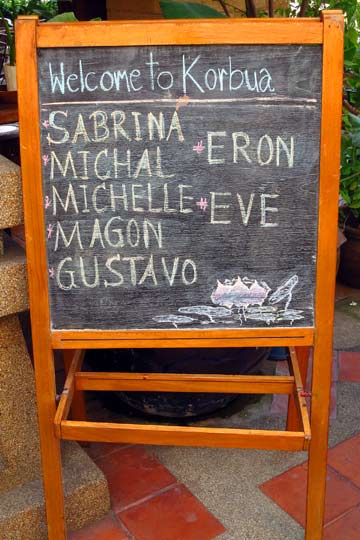 Welcome to Korbua
*SABRINA
*MICHAL
*MICHELLE
*MAGON
*GUSTAVO
*ERON
*EVE